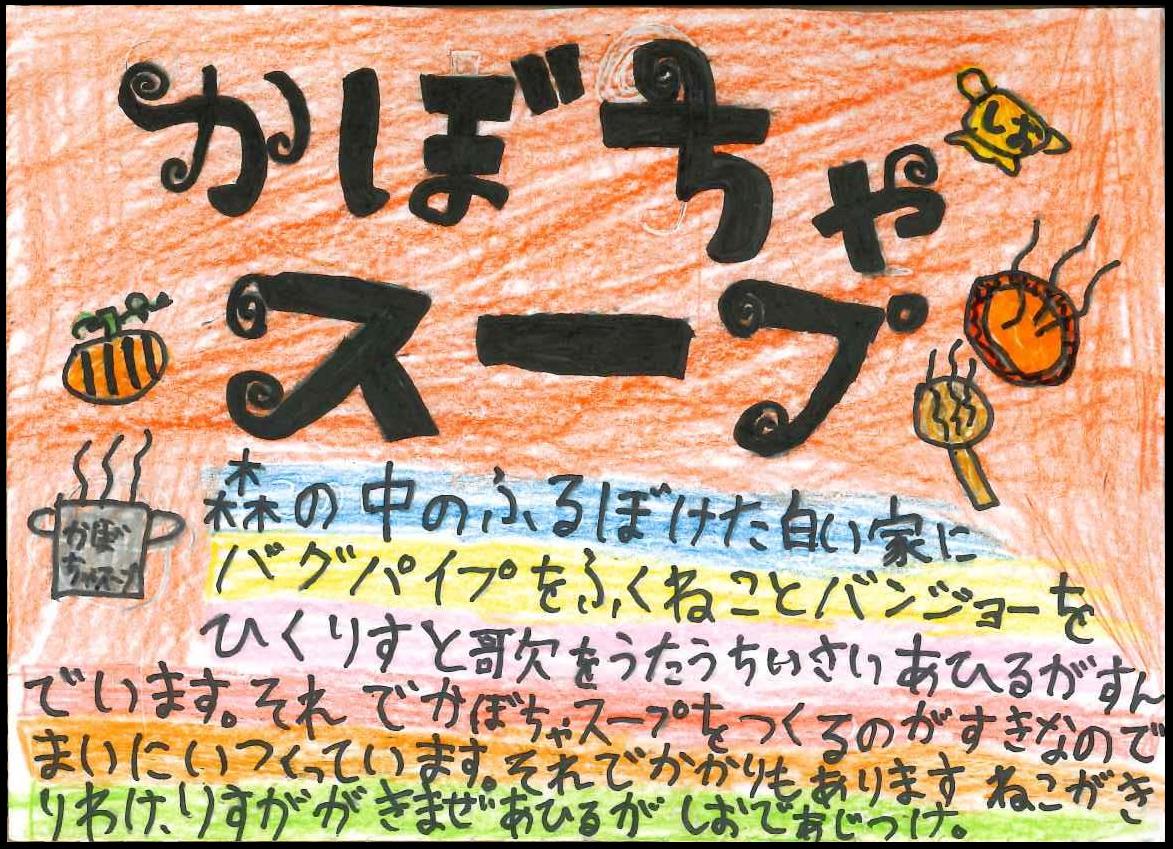 かぼちゃ
スープ
しお
かぼ
ちゃスープ
森の中のふるぼけた白い家に
バグパイプをふくねことバンジョーを
ひくりすと歌をうたうちいさいあひるがすん
でいます。それでかぼちゃスープをつくるのがすきなので
まいにいつくっています。それでかかりもありますねこがき
りわけ、りすががきまぜあひるがしおであじつけ。